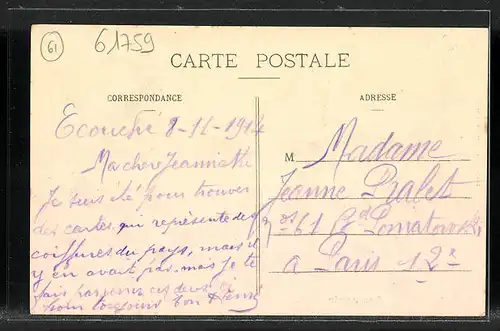 61
61759
CARTE POSTALE
CORRESPONDANCE
Ecouché 8-11-1914
Ma chère Jeannette
Je suis été pour trouver
des cartes qui représente des
coiffures du pays, mais il
y en avait pas. mais je te
fais parvenir ces deux
toujours ton
ADRESSE
M Madame
Jeanne
61 Bd
a Paris 12e